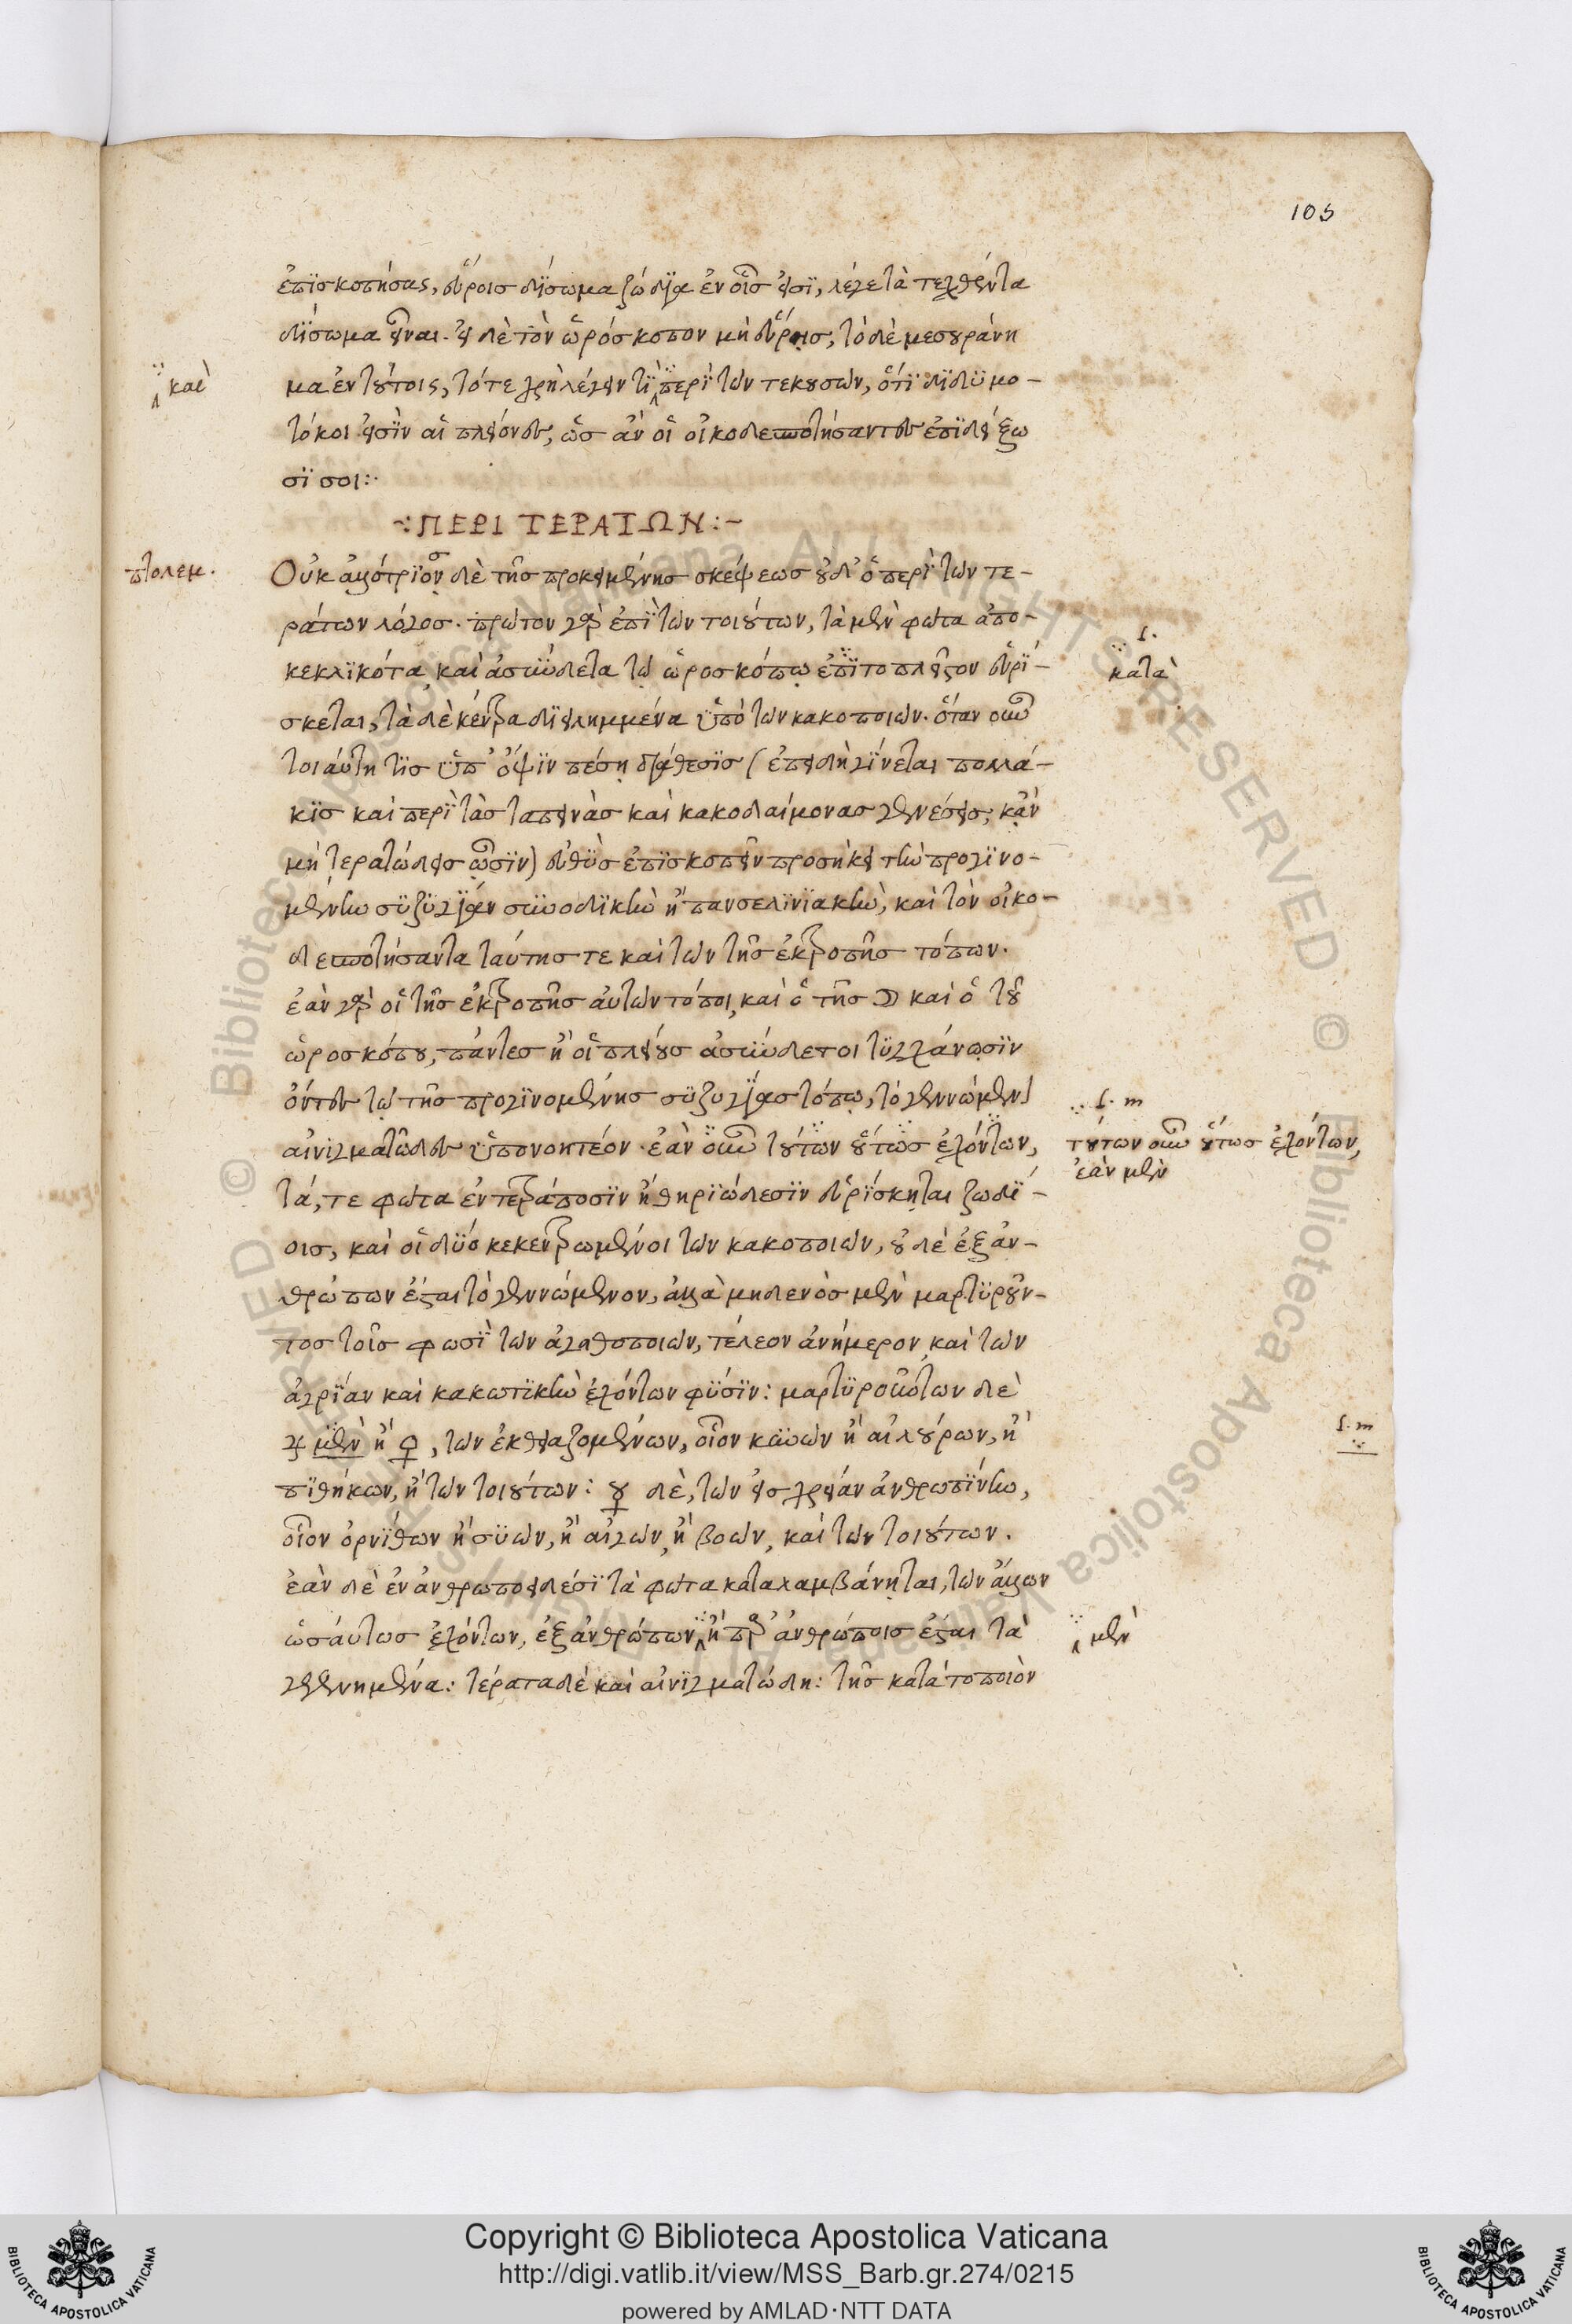 105
ἐπισκοπήσας, εὕροις δίσωμα ζώδια ἐν οἷς εἰσι, λέγε τὰ τεχθέντα
δίσωμα εἶναι. εἰ δὲ τὸν ὡρόσκοπον μὴ εὕροις, τὸ δὲ μεσουράνη
καὶ
μα ἐν τούτοις, τότε χρὴ λέγειν τι περὶ τῶν τεκουσῶν, ὅτι διδυμο-
τόκοι εἰσὶν αἱ πλείονες, ὡς ἂν οἱ οἰκοδεσποτήσαντες ἐπιδείξω
σι σοι:·
~:ΠΕΡΙ ΤΕΡΑΤΩΝ:~
πτολεμ.
Οὐκ ἀλλότριος δὲ τῆς προκειμένης σκέψεως οὐδ' ὁ περὶ τῶν τε-
ράτων λόγος. πρῶτον γὰρ ἐπὶ τῶν τοιούτων, τὰ μὲν φῶτα ἀπο-
κεκλικότα καὶ ἀσύνδετα τῷ ὡροσκόπῳ ἐπὶ το πλεῖστον εὑρί-
f.
κατὰ
σκεται, τὰ δὲ κέντρα διειλημμένα ὑπὸ τῶν κακοποιῶν. ὅταν οὖν
τοιαύτη τις ὑπ' ὄψιν πέσῃ διάθεσις (ἐπειδὴ γίνεται πολλά-
κις καὶ περὶ τὰς ταπεινὰς καὶ κακοδαίμονας γενέσεις, κἂν
μὴ τερατώδεις ὦσιν) εὐθὺς ἐπισκοπεῖν προσήκει τὴν προγινο-
μένην συζυγίαν συνοδικὴν ἢ πανσεληνιακὴν, καὶ τὸν οἰκο-
δεσποτήσαντα ταύτης τε καὶ τῶν τῆς ἐκτροπῆς τόπων.
ἐὰν γὰρ οἱ τῆς ἐκτροπῆς αὐτῶν τόποι, καὶ ὁ τῆς ☽ καὶ ὁ τοῦ
ὡροσκόπου, πάντες ἢ οἱ πλείους ἀσύνδετοι τυγχάνωσιν
ὄντες τῷ τῆς προγινομένης συζυγίας τόπῳ, τὸ γεννώμενον
αἰνιγματῶδες ὑπονοητέον. ἐὰν οὖν τούτων οὕτως ἐχόντων,
f. m
τούτων οὖν οὕτως ἐχόντων,
ἐὰν μὲν
τά, τε φῶτα ἐν τετράποσιν ἢ θηριώδεσιν εὑρίσκηται ζωδί-
οις, καὶ οἱ δύο κεκεντρωμένοι τῶν κακοποιῶν, οὐδὲ ἐξ ἀν-
θρώπων ἔσται τὸ γεννώμενον, ἀλλὰ μηδενὸς μὲν μαρτυροῦν-
τος τοῖς φωσὶ τῶν ἀγαθοποιῶν, τέλεον ἀνήμερον, καὶ τῶν
ἀγρίαν καὶ κακωτικὴν ἐχόντων φύσιν: μαρτυρούντων δὲ
♃ μὲν ἢ ♀, τῶν ἐκθειαζομένων, οἷον κυνῶν ἢ αἰλούρων, ἢ
f. m
πιθήκων, ἢ τῶν τοιούτων: ☿ δὲ, τῶν εἰς χρείαν ἀνθρωπίνην,
οἷον ὀρνίθων ἢ συῶν, ἢ αἰγῶν, ἢ βοῶν, καὶ τῶν τοιούτων.
ἐὰν δὲ ἐν ἀνθρωποειδέσι τὰ φῶτα καταλαμβάνηται, τῶν ἄλλων
ὡσαύτως ἐχόντων, ἐξ ἀνθρώπων ἢ παρ' ἀνθρώποις ἔσται τὰ
μὲν
γεγεννημένα: τέρατα δὲ καὶ αἰνιγματώδη: τῆς κατὰ το ποιὸν
Copyright © Biblioteca Apostolica Vaticana
http://digi.vatlib.it/view/MSS_Barb.gr.274/0215
powered by AMLAD·NTT DATA
BIBLIOTECA APOSTOLICA VATICANA
BIBLIOTECA APOSTOLICA VATICANA